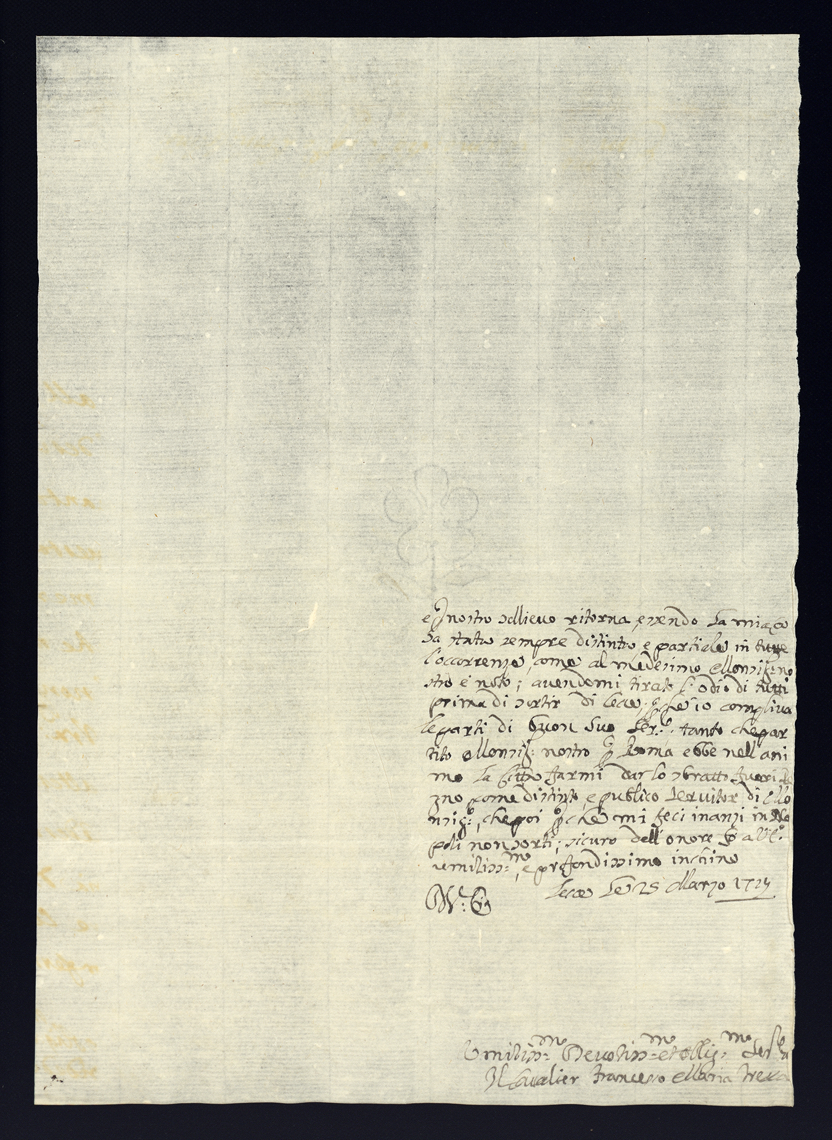 e nostro sollievo ritorna, essendo la mia
sa stata sempre distinta e partiale in tutte
l'occorrenze, come al medesimo Monsig: no
stro è noto; avendomi tirato l'odio di tutti
prima di sortir di Lecce, io compliva
le parti di buon suo Ser:, tanto che par
tito Monsig: nostro Roma ebbe nell'ani
mo la Città farmi dar lo sbratto fuori
gno come distinto, e publico servitor di Mo
nsig:, che poi che mi feci inanzi in Na
poli non sortì; sicuro dell'onore
umiliss:mo, e profondissimo inchino
Lecce li 25 Marzo
Umiliss:mo Devotiss:mo et Obblig:mo
Il Cavalier Francesco Maria